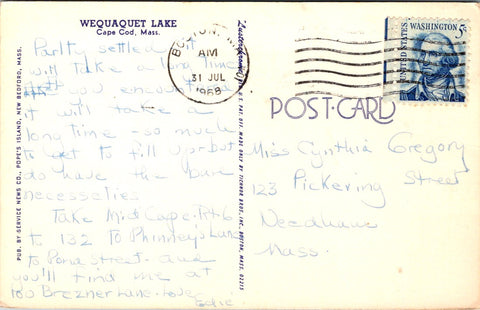 WEQUAQUET LAKE
Cape Cod, Mass.
Partly settled it
will take a long time
you encountered
it will take a
long time - so much
to get to fill up but
do have the bare
necesseties
Take Mid Cape-Rt-6
to 132 To Phinney's Lane
to Pond Street and
you'll find me at
100 Brezner Lane - Love
Edie
PUB. BY SERVICE NEWS CO., POPE'S ISLAND, NEW BEDFORD, MASS.
MADE ONLY BY TICHNOR BROS., INC., BOSTON, MASS. 02215
BOSTON, MA
AM
31 JUL
1968
UNITED STATES
WASHINGTON 5c
POST-CARD
Miss Cynthia Gregory
123 Pickering Street
Needham
Mass.